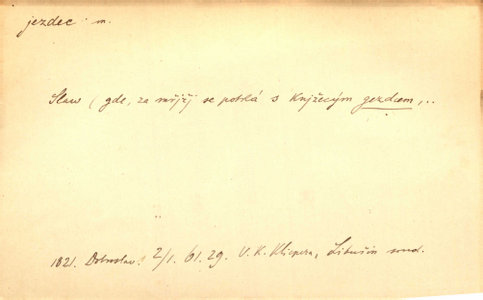 jezdec m.
Slaw (gde, za mřjžj se potká s Knjžecým gezdcem,..
1821. Dobroslaw 2/1. 61. 29. V. K. Klicpera, Libušin soud.